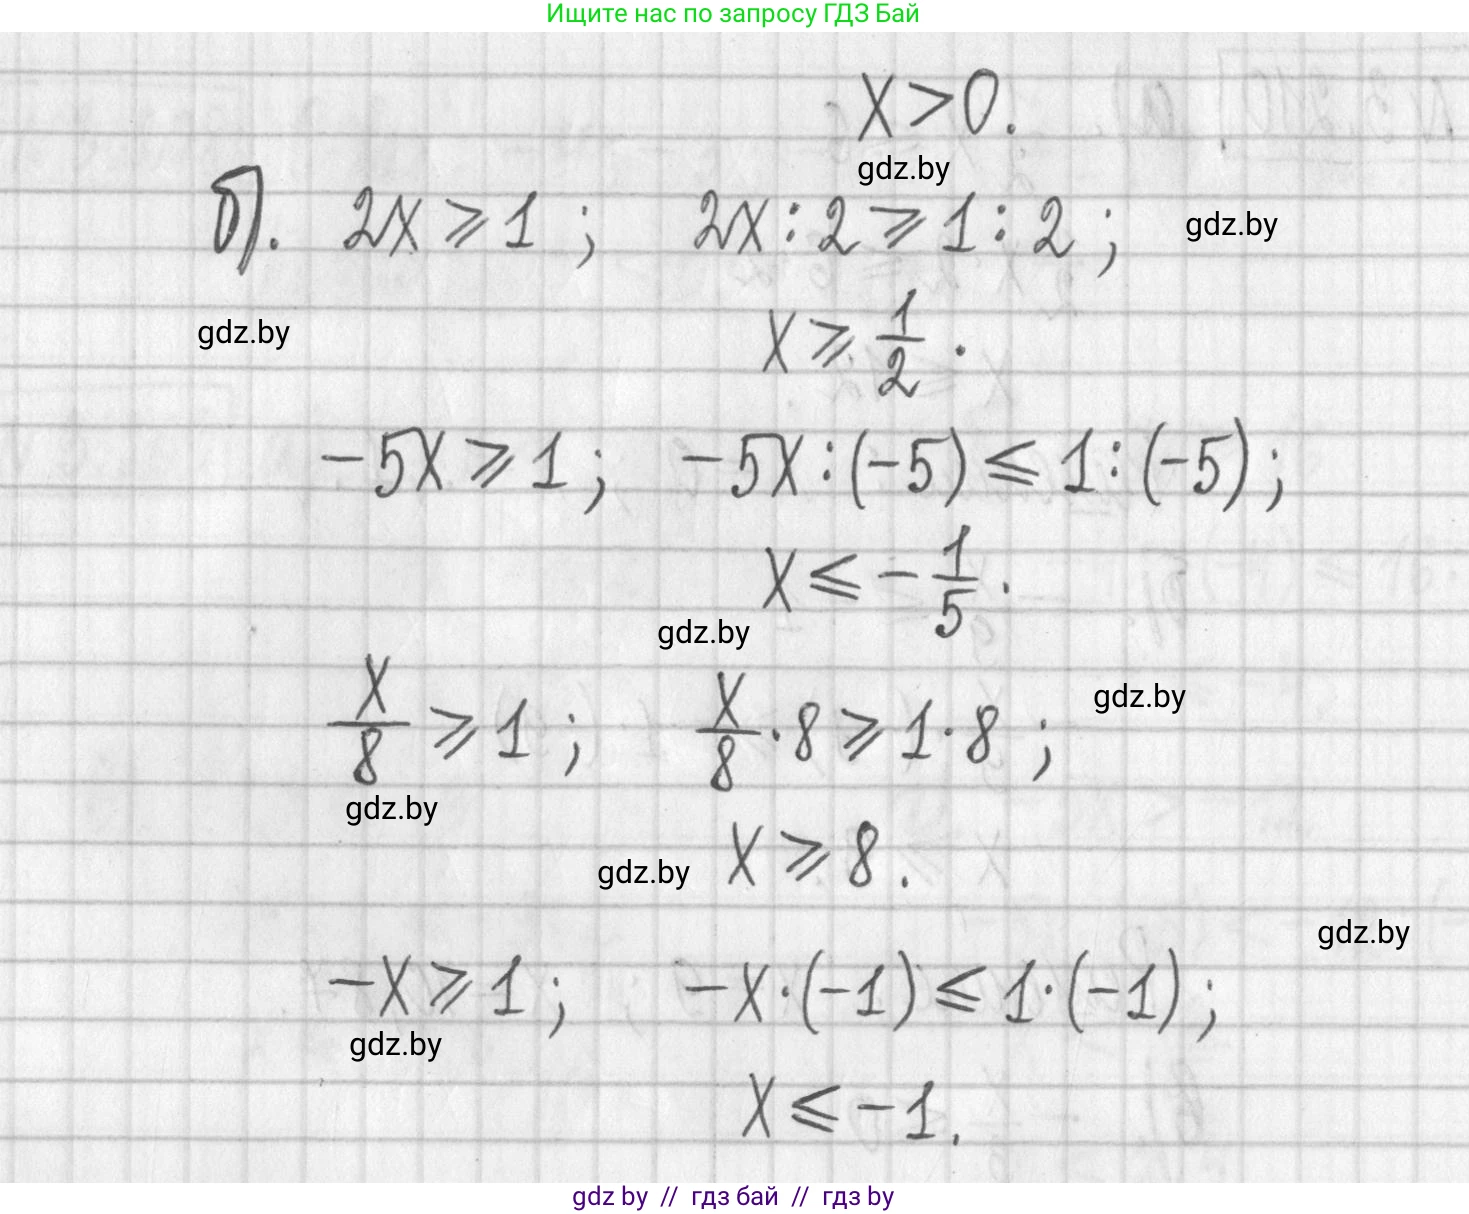 Ищите нас по запросу ГДЗ Бай
x > 0.
gdz.by
б). 2x ⩾ 1 ; 2x : 2 ⩾ 1 : 2 ;
gdz.by
gdz.by
x ⩾ 1/2 .
-5x ⩾ 1 ; -5x : (-5) ⩽ 1 : (-5) ;
x ⩽ -1/5 .
gdz.by
x/8 ⩾ 1 ; x/8 · 8 ⩾ 1 · 8 ;
gdz.by
gdz.by
x ⩾ 8 .
gdz.by
gdz.by
-x ⩾ 1 ; -x · (-1) ⩽ 1 · (-1) ;
gdz.by
x ⩽ -1 .
gdz by // гдз бай // гдз by